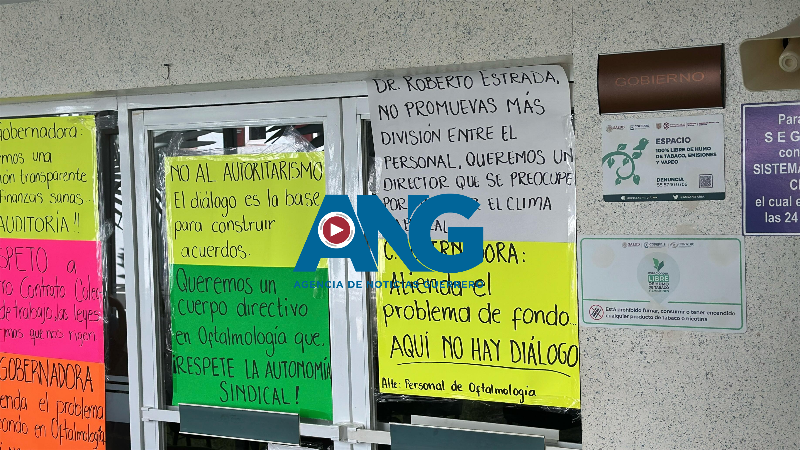 gobernadora:
emos una
ión transparente
finanzas sanas.
AUDITORÍA!!
SPETO a
ro Contrato Colec
de trabajo, las leyes
GOBERNADORA
enda el problema
ondo en Oftalmología
NO AL AUTORITARISMO
El diálogo es la base
para construir
acuerdos.
Queremos un
cuerpo directivo
en Oftalmología que
¡RESPETE LA AUTONOMÍA
SINDICAL!
DR. ROBERTO ESTRADA,
NO PROMUEVAS MÁS
DIVISIÓN ENTRE EL
PERSONAL, QUEREMOS UN
DIRECTOR QUE SE PREOCUPE
POR EL CLIMA
C. GOBERNADORA:
Atienda el
problema de fondo.
AQUÍ NO HAY DIÁLOGO
Atte: Personal de Oftalmología
ANG
AGENCIA DE NOTICIAS GUERRERO
GOBIERNO
ESPACIO
100% LIBRE DE HUMO
DE TABACO, EMISIONES
Y VAPEO
DENUNCIA
LIBRE
Está prohibido fumar, consumir o tener encendido
cualquier producto de tabaco o nicotina
Para
SEG
con
SISTEMA
C
el cual e
las 24